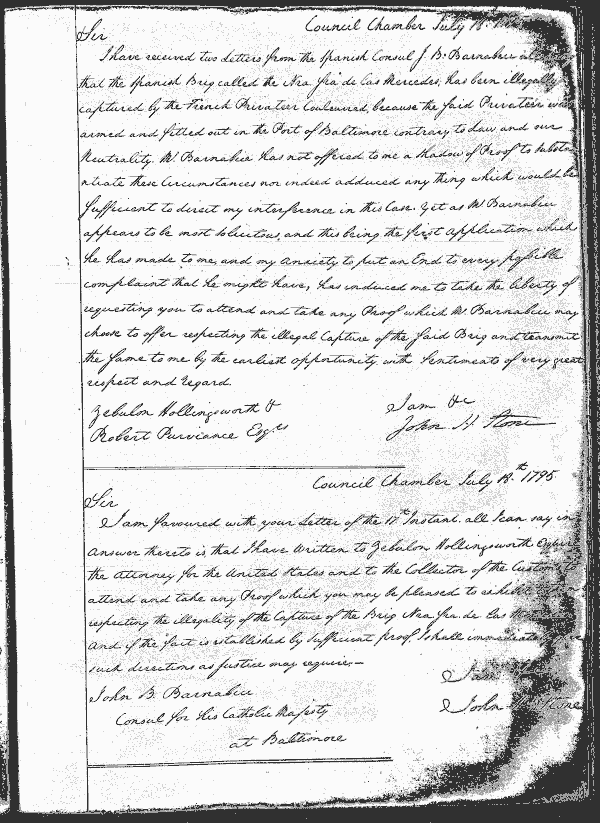 Council Chamber July 18.th
Sir
I have received two Letters from the Spanish Consul J B. Barnabeu
that the Spanish Brig called the Nra Sra de las Mercedes, has been illegally
captured by the French Privateer Couleuvred, because the said Privateer was
armed and fitted out in the Port of Baltimore contrary to Law and our
Neutrality. Mr. Barnabeu has not offered to me a shadow of Proof to substa-
ntiate these Circumstances nor indeed adduced any thing which would be
sufficient to direct my interference in this Case. Yet as Mr Barnabeu
appears to be most solicitous, and this being the first application which
he has made to me, and my Anxiety to put an End to every possible
complaint that he might have, has induced me to take the liberty of
requesting you to attend and take any Proof which Mr Barnabeu may
choose to offer respecting the illegal Capture of the said Brig and transmit
the same to me by the earliest opportunity with Sentiments of very great
respect and regard.
Zebulon Hollingsworth &
I am &c
Robert Purviance Esqrs
John H. Stone
Council Chamber July 18.th 1795
Sir
I am favoured with your Letter of the 17th Instant. all I can say in
answer thereto is that I have written to Zebulon Hollingsworth Esquire
the Attorney for the United States and to the Collector of the Customs to
attend and take any Proof which you may be pleased to exhibit
respecting the illegality of the Capture of the Brig Nra Sra de las
And if the fact is established by sufficient proof, I shall immediately
such directions as Justice may require.—
I am
John B. Barnabeu
John H. Stone
Consul for His Catholic Majesty
at Baltimore